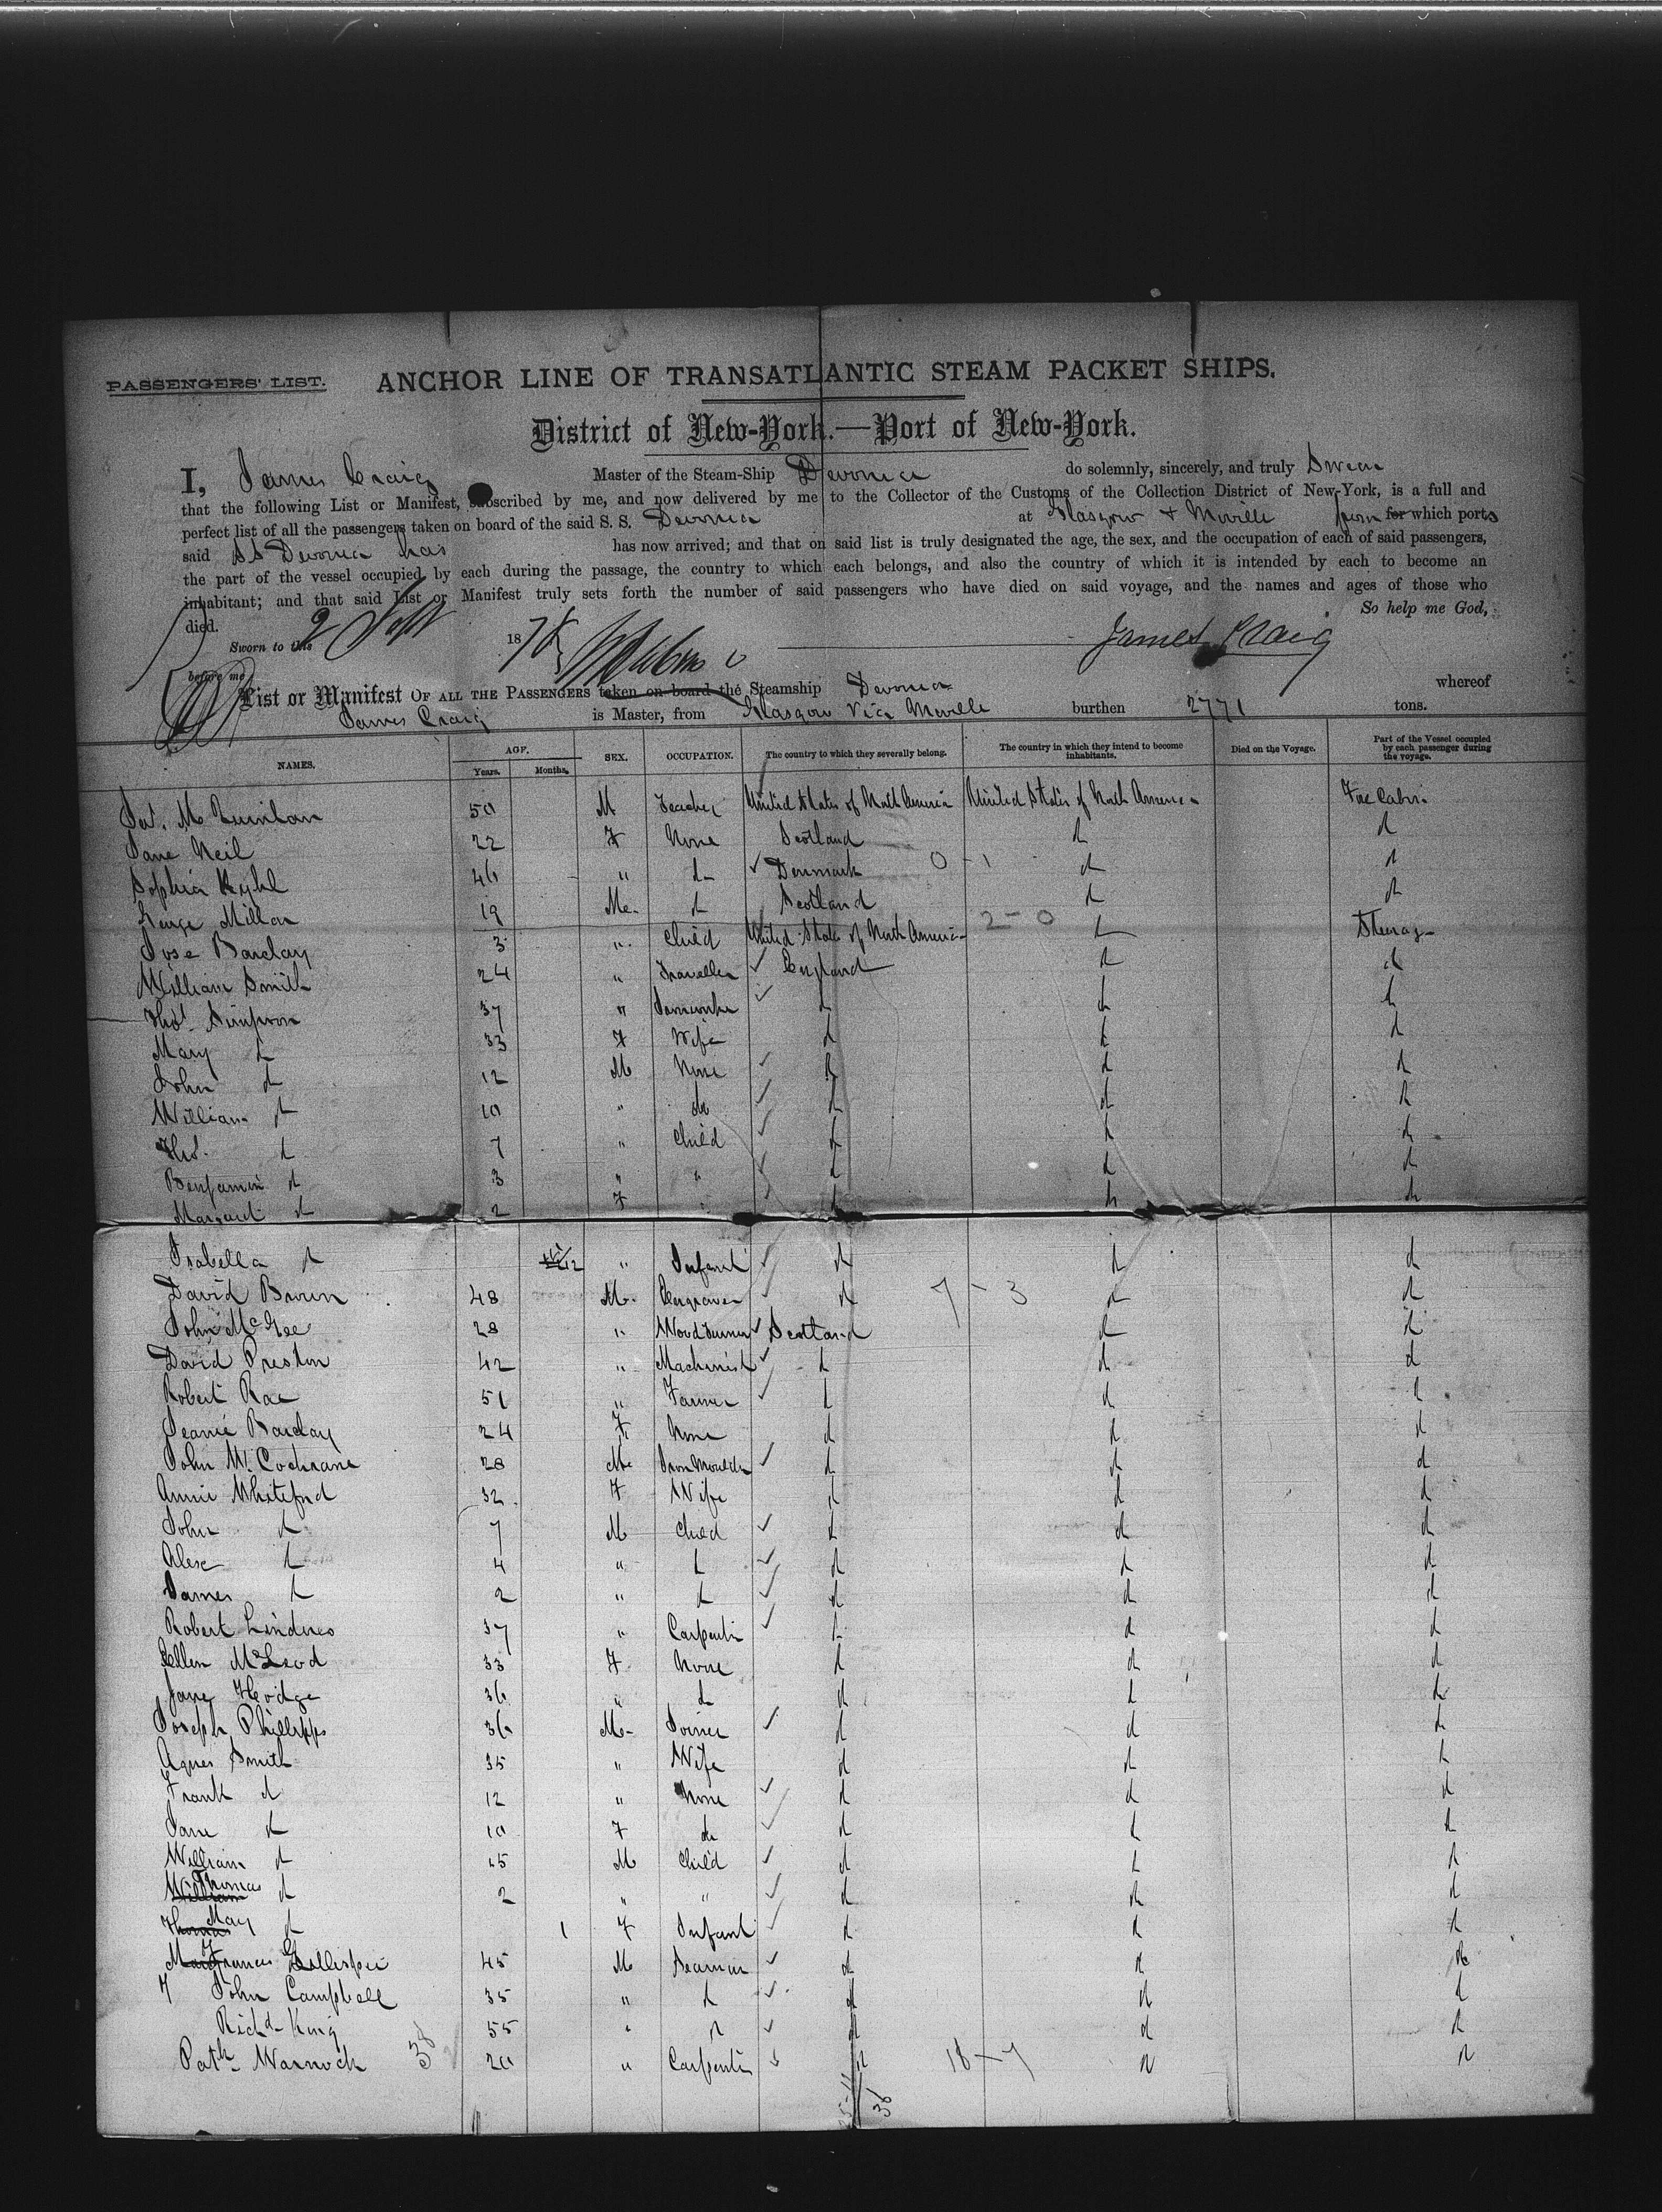 PASSENGERS' LIST. ANCHOR LINE OF TRANSATLANTIC STEAM PACKET SHIPS.
District of New-York.—Port of New-York.
I, James Craig Master of the Steam-Ship Devonia do solemnly, sincerely, and truly Swear
that the following List or Manifest, subscribed by me, and now delivered by me to the Collector of the Customs of the Collection District of New-York, is a full and
perfect list of all the passengers taken on board of the said S. S. Devonia at Glasgow + Moville from for which ports
said SS Devonia has has now arrived; and that on said list is truly designated the age, the sex, and the occupation of each of said passengers,
the part of the vessel occupied by each during the passage, the country to which each belongs, and also the country of which it is intended by each to become an
inhabitant; and that said List or Manifest truly sets forth the number of said passengers who have died on said voyage, and the names and ages of those who
died. So help me God,
Sworn to this 2 Sept 1878 James Craig
before me
List or Manifest OF ALL THE PASSENGERS taken on board the Steamship Devonia whereof
James Craig is Master, from Glasgow Via Moville burthen 2771 tons.
NAMES. AGE. Years. Months. SEX. OCCUPATION. The country to which they severally belong. The country in which they intend to become inhabitants. Died on the Voyage. Part of the Vessel occupied by each passenger during the voyage.
Jas. Mc Quinlan 50 M Teacher United States of North America United States of North America
Jane Neil 22 F None Scotland d
Sophia Kyhl 46 " d Denmark 0 - 1 d d
George Millar 19 M d Scotland d d
Barclay 3 " Child United States of North America 2 - 0 d Steerage
William Smith 24 " Traveller England d d
Thos. Simpson 37 " d d d
Mary d 33 F Wife d d d
John d 12 M None d d d
William d 10 " do d d d
Thos. d 7 " Child d d d
Benjamin d 3 " " d d d
Margaret d 2 F " d d d
Isabella d " Infant d d d
David Brown 48 M Engraver d 7 - 3 d d
John McGee 28 " Wood Turner Scotland d d
David Preston 42 " Machinist d d d
Robert Rae 51 " Farmer d d d
Jeanie Barclay 24 F None d d d
John M. Cochrane 28 M Iron Moulder d d d
Annie Whiteford 32 F Wife d d d
John d 7 M Child d d d
Alex d 4 " d d d d
James d 2 " d d d d
Robert Lindres 37 " Carpenter d d d
Ellen McLeod 33 F None d d d
Jane Hodge 36 " d d d d
Joseph Phillipps 36 M Joiner d d d
Agnes Smith 35 " Wife d d d
Frank d 12 " None d d d
Jane d 10 F do d d d
William d M Child d d d
William Thomas d 2 " " d d d
Thomas May d 1 F Infant d d d
Francis Gillespie 45 M Seaman d d d
John Campbell 35 " d d d d
Richd. King 55 " d d d d
Patk. Warnock 38 20 " Carpenter d 18 - 7 d d
38